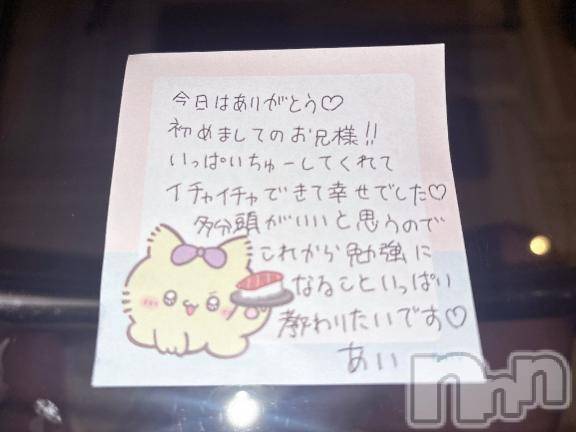 今日はありがとう♡
初めましてのお兄様!!
いっぱいちゅーしてくれて
イチャイチャできて幸せでした♡
多分頭がいいと思うので
これから勉強に
なることいっぱい
教わりたいです♡
あい
nnn